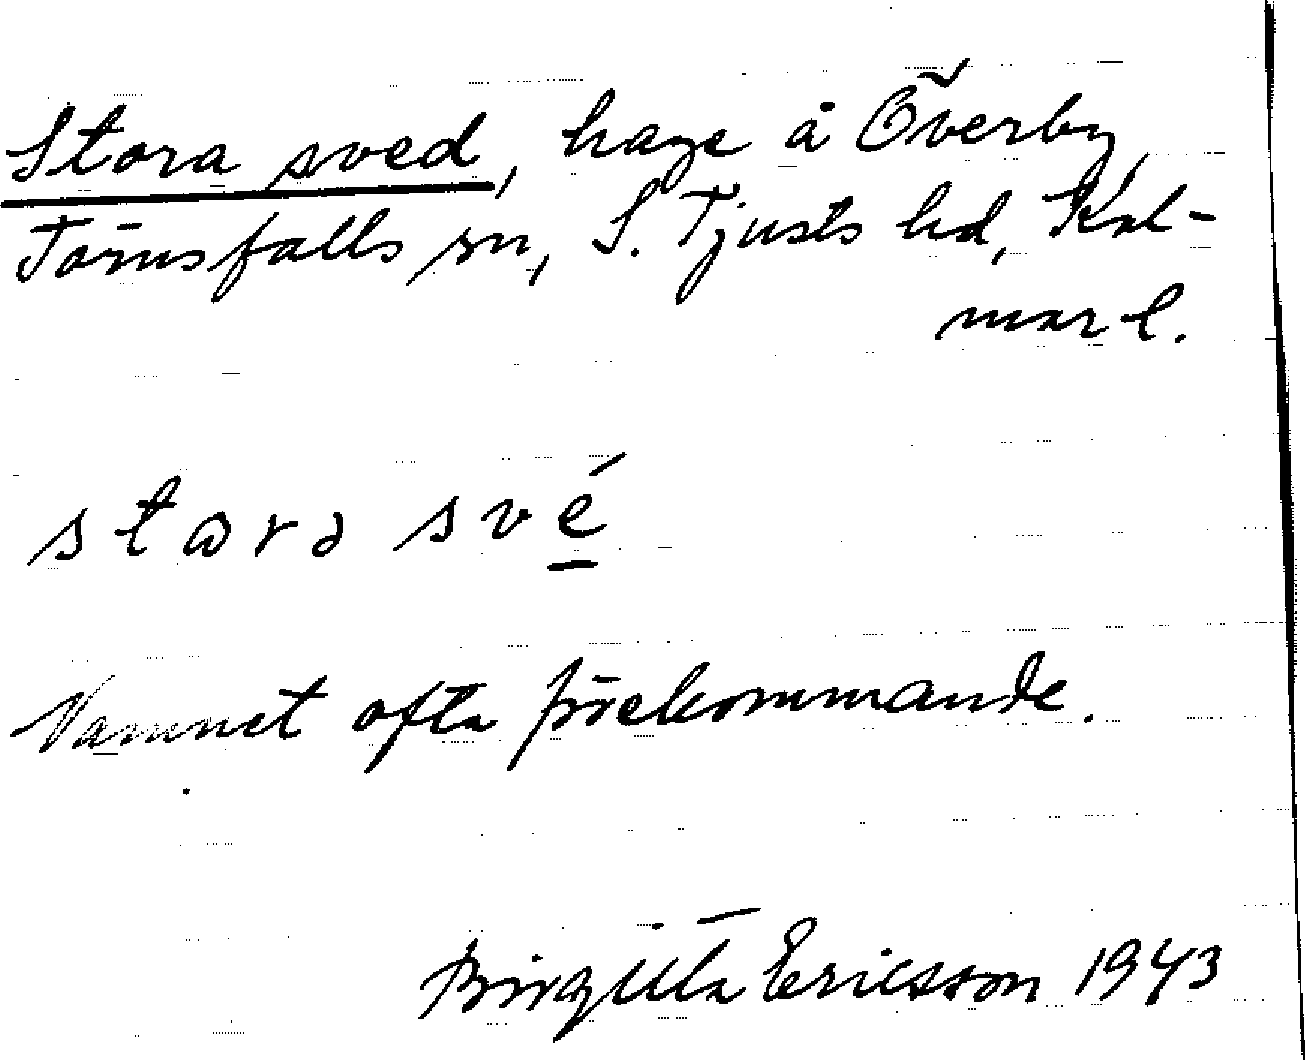 Stora sved, hage å Överby,
Törnsfalls sn, S. Tjusts hd, Kal-
mar l.
stɷra své
Namnet ofta förekommande.
Birgitta Ericsson 1943